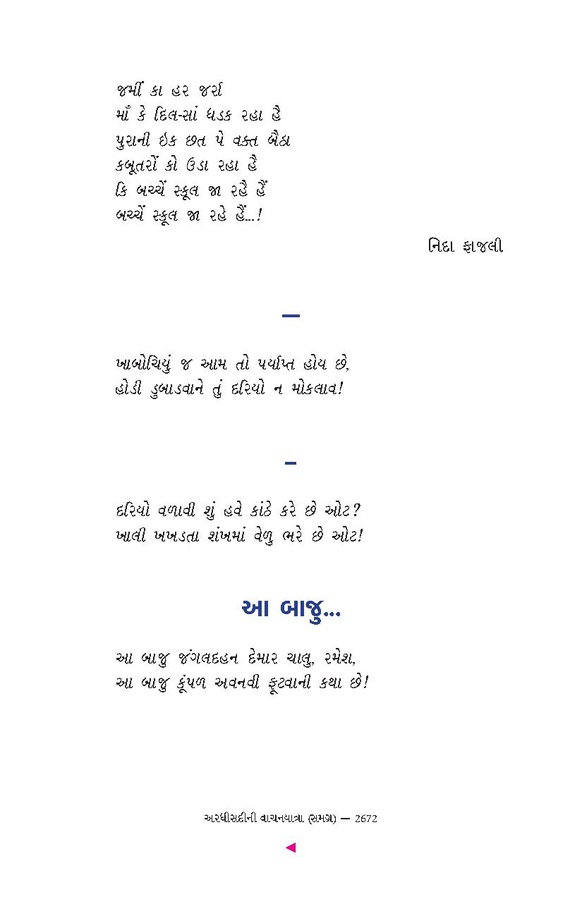 જમીં કા હર જર્રા
માઁ કે દિલ-સાં ધડક રહા હૈ
પુરાની ઇક છત પે વક્ત બૈઠા
કબૂતરોં કો ઉડા રહા હૈ
કિ બચ્ચેં સ્કૂલ જા રહૈ હૈં
બચ્ચેં સ્કૂલ જા રહે હૈં...!
નિદા ફાજલી
—
ખાબોચિયું જ આમ તો પર્યાપ્ત હોય છે,
હોડી ડુબાડવાને તું દરિયો ન મોકલાવ!
–
દરિયો વળાવી શું હવે કાંઠે કરે છે ઓટ?
ખાલી ખખડતા શંખમાં વેળુ ભરે છે ઓટ!
આ બાજુ...
આ બાજુ જંગલદહન દેમાર ચાલુ, રમેશ,
આ બાજુ કૂંપળ અવનવી ફૂટવાની કથા છે!
અરધીસદીની વાચનયાત્રા (સમગ્ર) — 2672